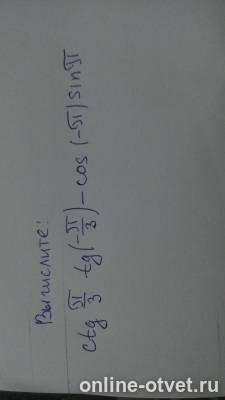 Вычислите:
ctg π/3 tg(-π/3) - cos(-π) sin π
online-otvet.ru